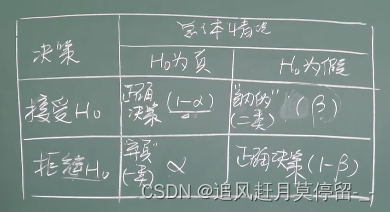 总体情况
决策
H₀为真
H₀为假
接受H₀
正确决策 (1-α)
"纳伪" (二类) (β)
拒绝H₀
"弃真" (一类) α
正确决策(1-β)
CSDN @追风赶月莫停留-_-